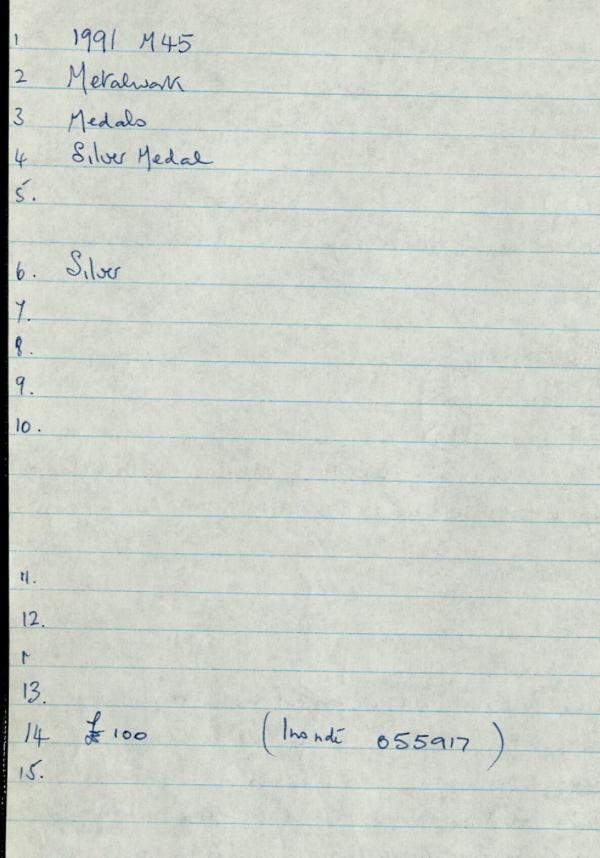 1 1991 M45
2 Metalwork
3 Medals
4 Silver Medal
5.
6. Silver
7.
8.
9.
10.
11.
12.
13.
14 £100 ( 055917 )
15.